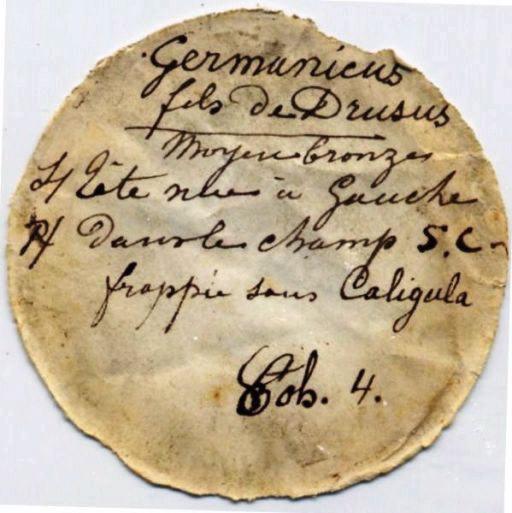 Germanicus
fils de Drusus
Moyen bronze
/ Tête nue à Gauche
R/ dans le champ S.C.
frappée sous Caligula
Coh. 4.